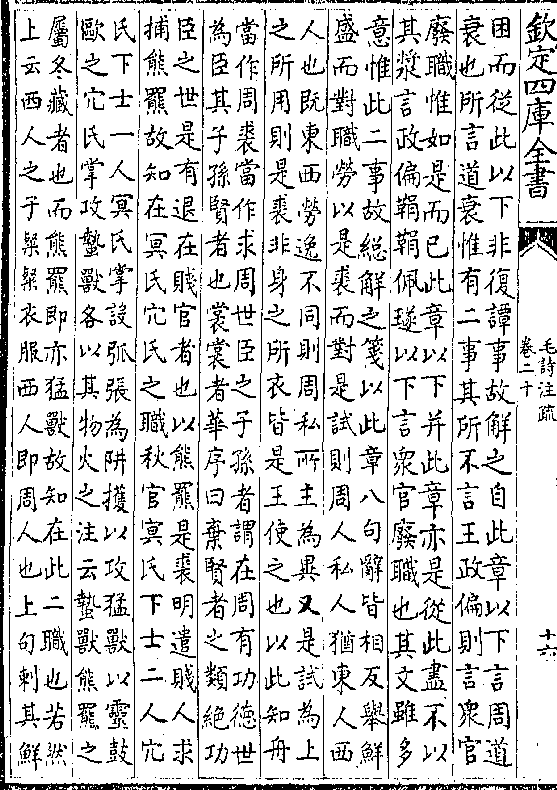 欽定四庫全書
毛詩注疏
卷二十
十六
困而從此以下非復譚事故解之自此章以下言周道
衰也所言道衰惟有二事其所不言王政偏則言衆官
廢職惟如是而已此章以下并此章亦是從此盡不以
其漿言政偏鞙鞙佩璲以下言衆官廢職也其文雖多
意惟此二事故總解之箋以此章八句辭皆相反舉鮮
盛而對職勞以是裘而對是試則周人私人猶東人西
人也既東西勞逸不同則周私所主為異又是試為上
之所用則是裘非身之所衣皆是王使之也以此知舟
當作周裘當作求周世臣之子孫者謂在周有功德世
為臣其子孫賢者也裳裳者華序曰棄賢者之類絶功
臣之世是有退在賤官者也以熊羆是裘明遣賤人求
捕熊羆故知在冥氏穴氏之職秋官冥氏下士二人穴
氏下士一人冥氏掌設弧張為阱擭以攻猛獸以靈鼓
敺之穴氏掌攻蟄獸各以其物火之注云蟄獸熊羆之
屬冬藏者也而熊羆即亦猛獸故知在此二職也若然
上云西人之子粲粲衣服西人即周人也上句刺其鮮